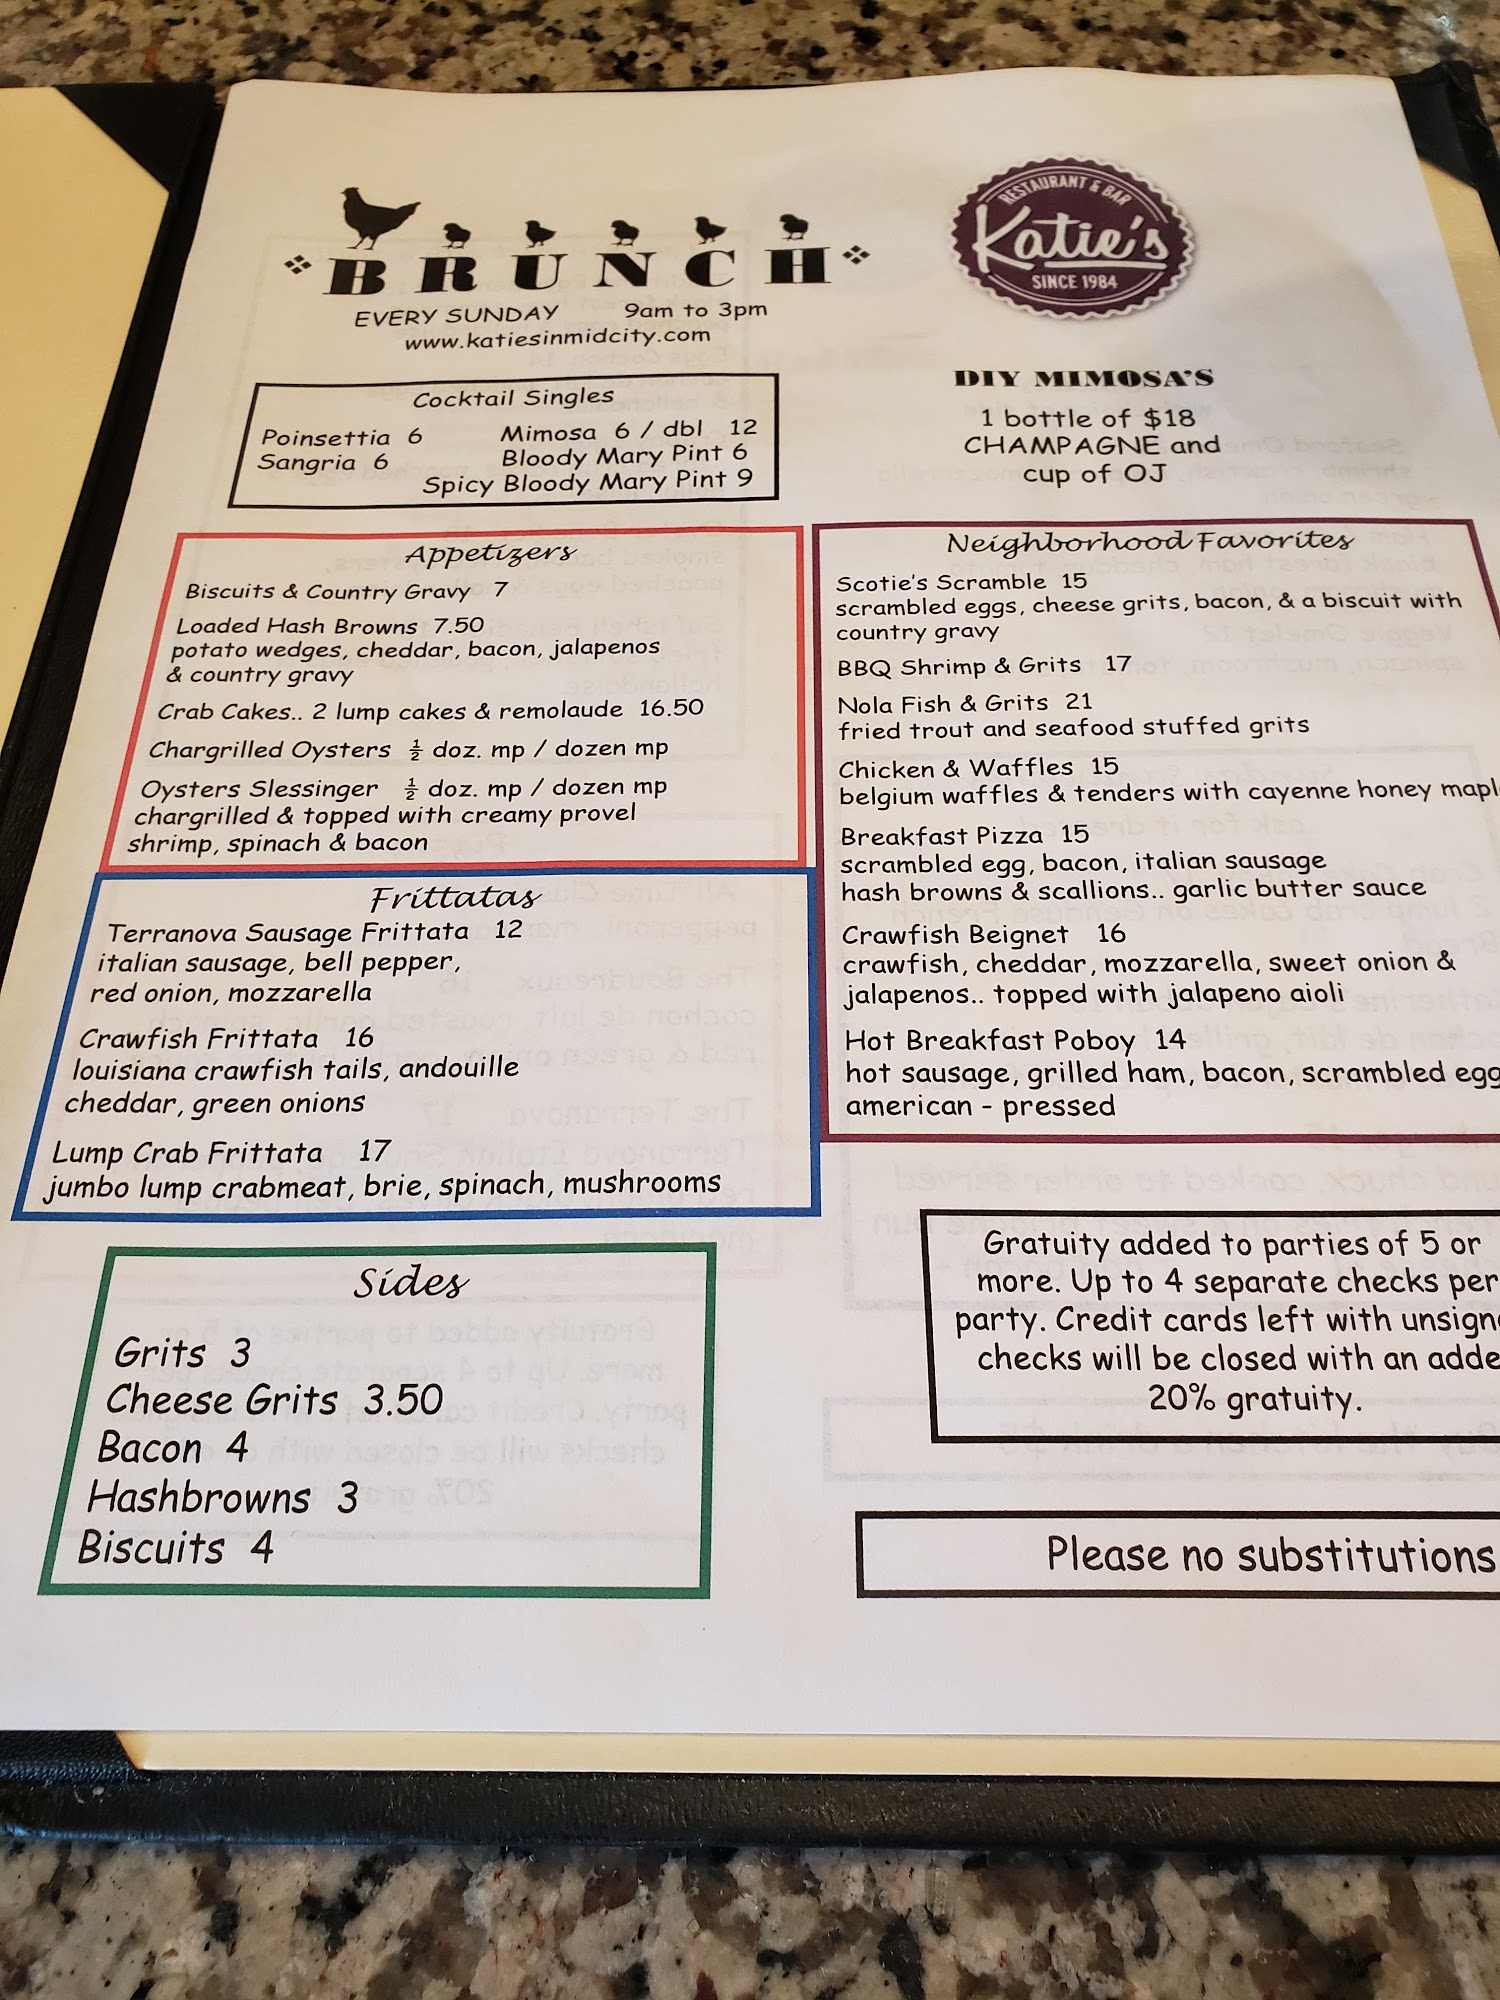 BRUNCH
EVERY SUNDAY 9am to 3pm
www.katiesinmidcity.com
RESTAURANT & BAR
Katie's
SINCE 1984
Cocktail Singles
Poinsettia 6 Mimosa 6 / dbl 12
Sangria 6 Bloody Mary Pint 6
Spicy Bloody Mary Pint 9
DIY MIMOSA'S
1 bottle of $18
CHAMPAGNE and
cup of OJ
Appetizers
Biscuits & Country Gravy 7
Loaded Hash Browns 7.50
potato wedges, cheddar, bacon, jalapenos
& country gravy
Crab Cakes.. 2 lump cakes & remolaude 16.50
Chargrilled Oysters ½ doz. mp / dozen mp
Oysters Slessinger ½ doz. mp / dozen mp
chargrilled & topped with creamy provel
shrimp, spinach & bacon
Frittatas
Terranova Sausage Frittata 12
italian sausage, bell pepper,
red onion, mozzarella
Crawfish Frittata 16
louisiana crawfish tails, andouille
cheddar, green onions
Lump Crab Frittata 17
jumbo lump crabmeat, brie, spinach, mushrooms
Sides
Grits 3
Cheese Grits 3.50
Bacon 4
Hashbrowns 3
Biscuits 4
Neighborhood Favorites
Scotie's Scramble 15
scrambled eggs, cheese grits, bacon, & a biscuit with
country gravy
BBQ Shrimp & Grits 17
Nola Fish & Grits 21
fried trout and seafood stuffed grits
Chicken & Waffles 15
belgium waffles & tenders with cayenne honey mapl
Breakfast Pizza 15
scrambled egg, bacon, italian sausage
hash browns & scallions.. garlic butter sauce
Crawfish Beignet 16
crawfish, cheddar, mozzarella, sweet onion &
jalapenos.. topped with jalapeno aioli
Hot Breakfast Poboy 14
hot sausage, grilled ham, bacon, scrambled egg
american - pressed
Gratuity added to parties of 5 or
more. Up to 4 separate checks per
party. Credit cards left with unsign
checks will be closed with an adde
20% gratuity.
Please no substitutions